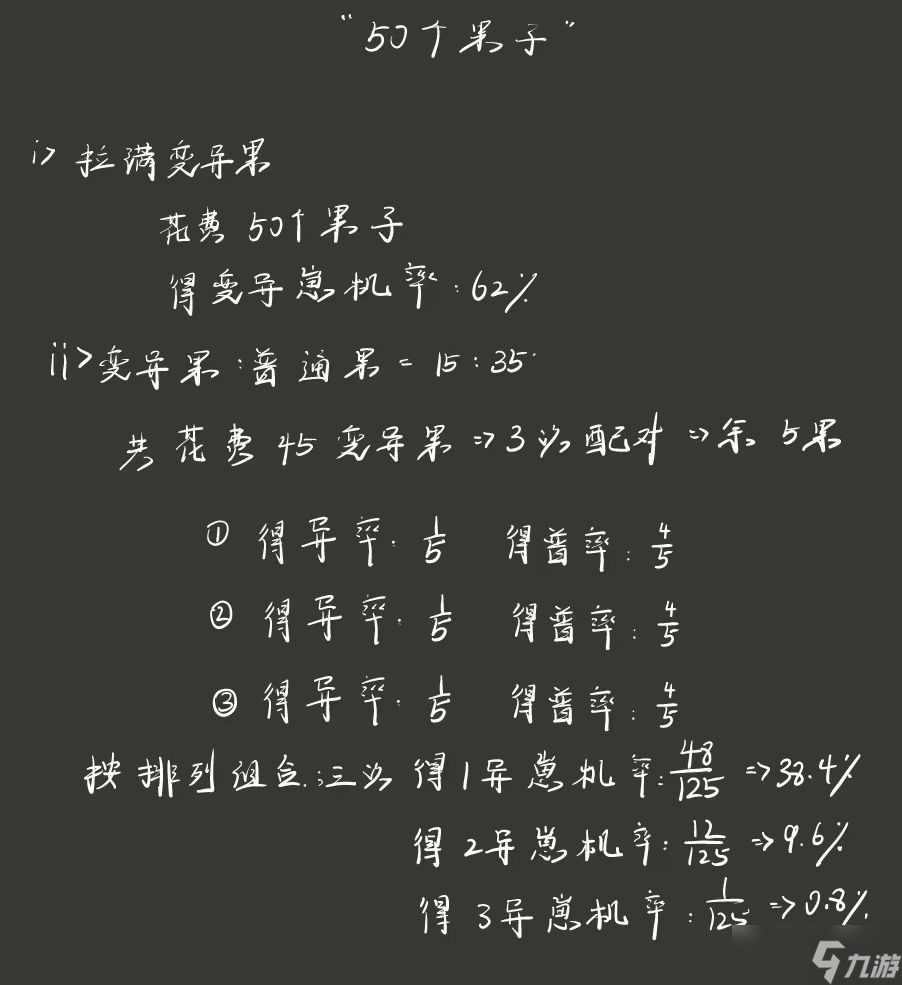 “50个果子”
i> 拉满变异果
花费 50个果子
得变异崽机率:62%
ii>变异果:普通果=15:35
共花费45变异果=>3次配对=>余5果
① 得异率:1/5 得普率:4/5
② 得异率:1/5 得普率:4/5
③ 得异率:1/5 得普率:4/5
按排列组合:三次得1异崽机率:48/125=>38.4%
得2异崽机率:12/125=>9.6%
得3异崽机率:1/125=>0.8%.
九游